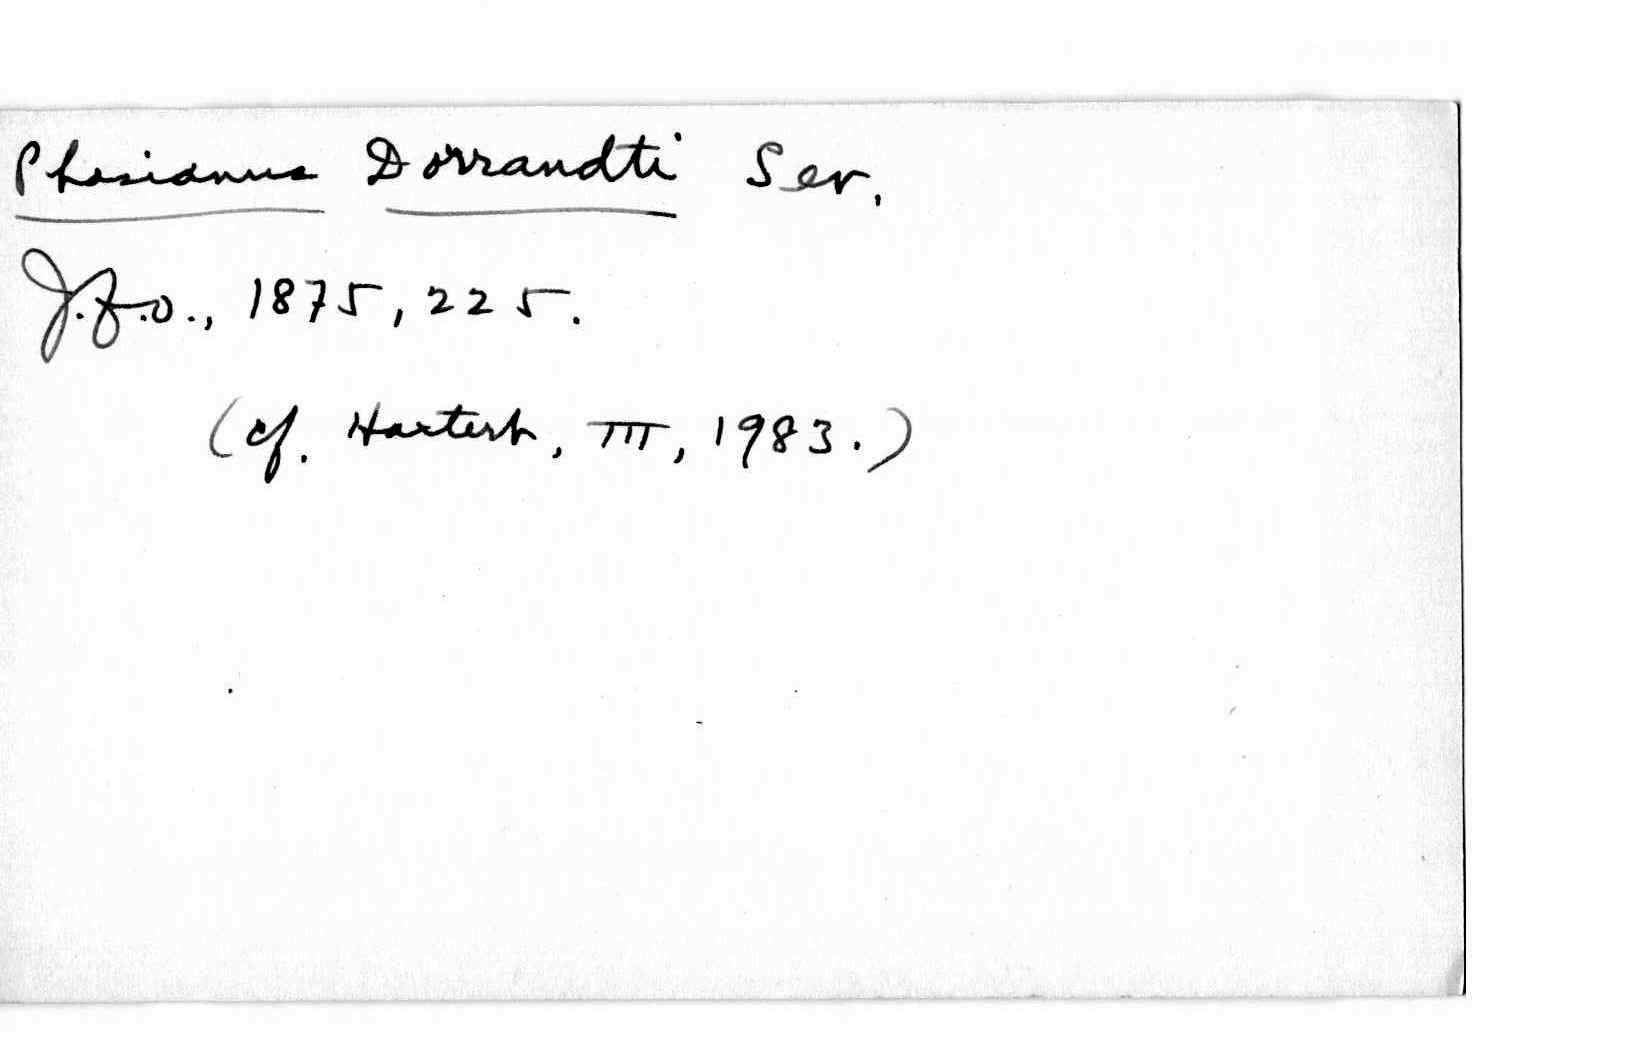 Phasianus Dorrandti Sev.
J.f.O., 1875, 225.
(cf. Hartert, III, 1983.)